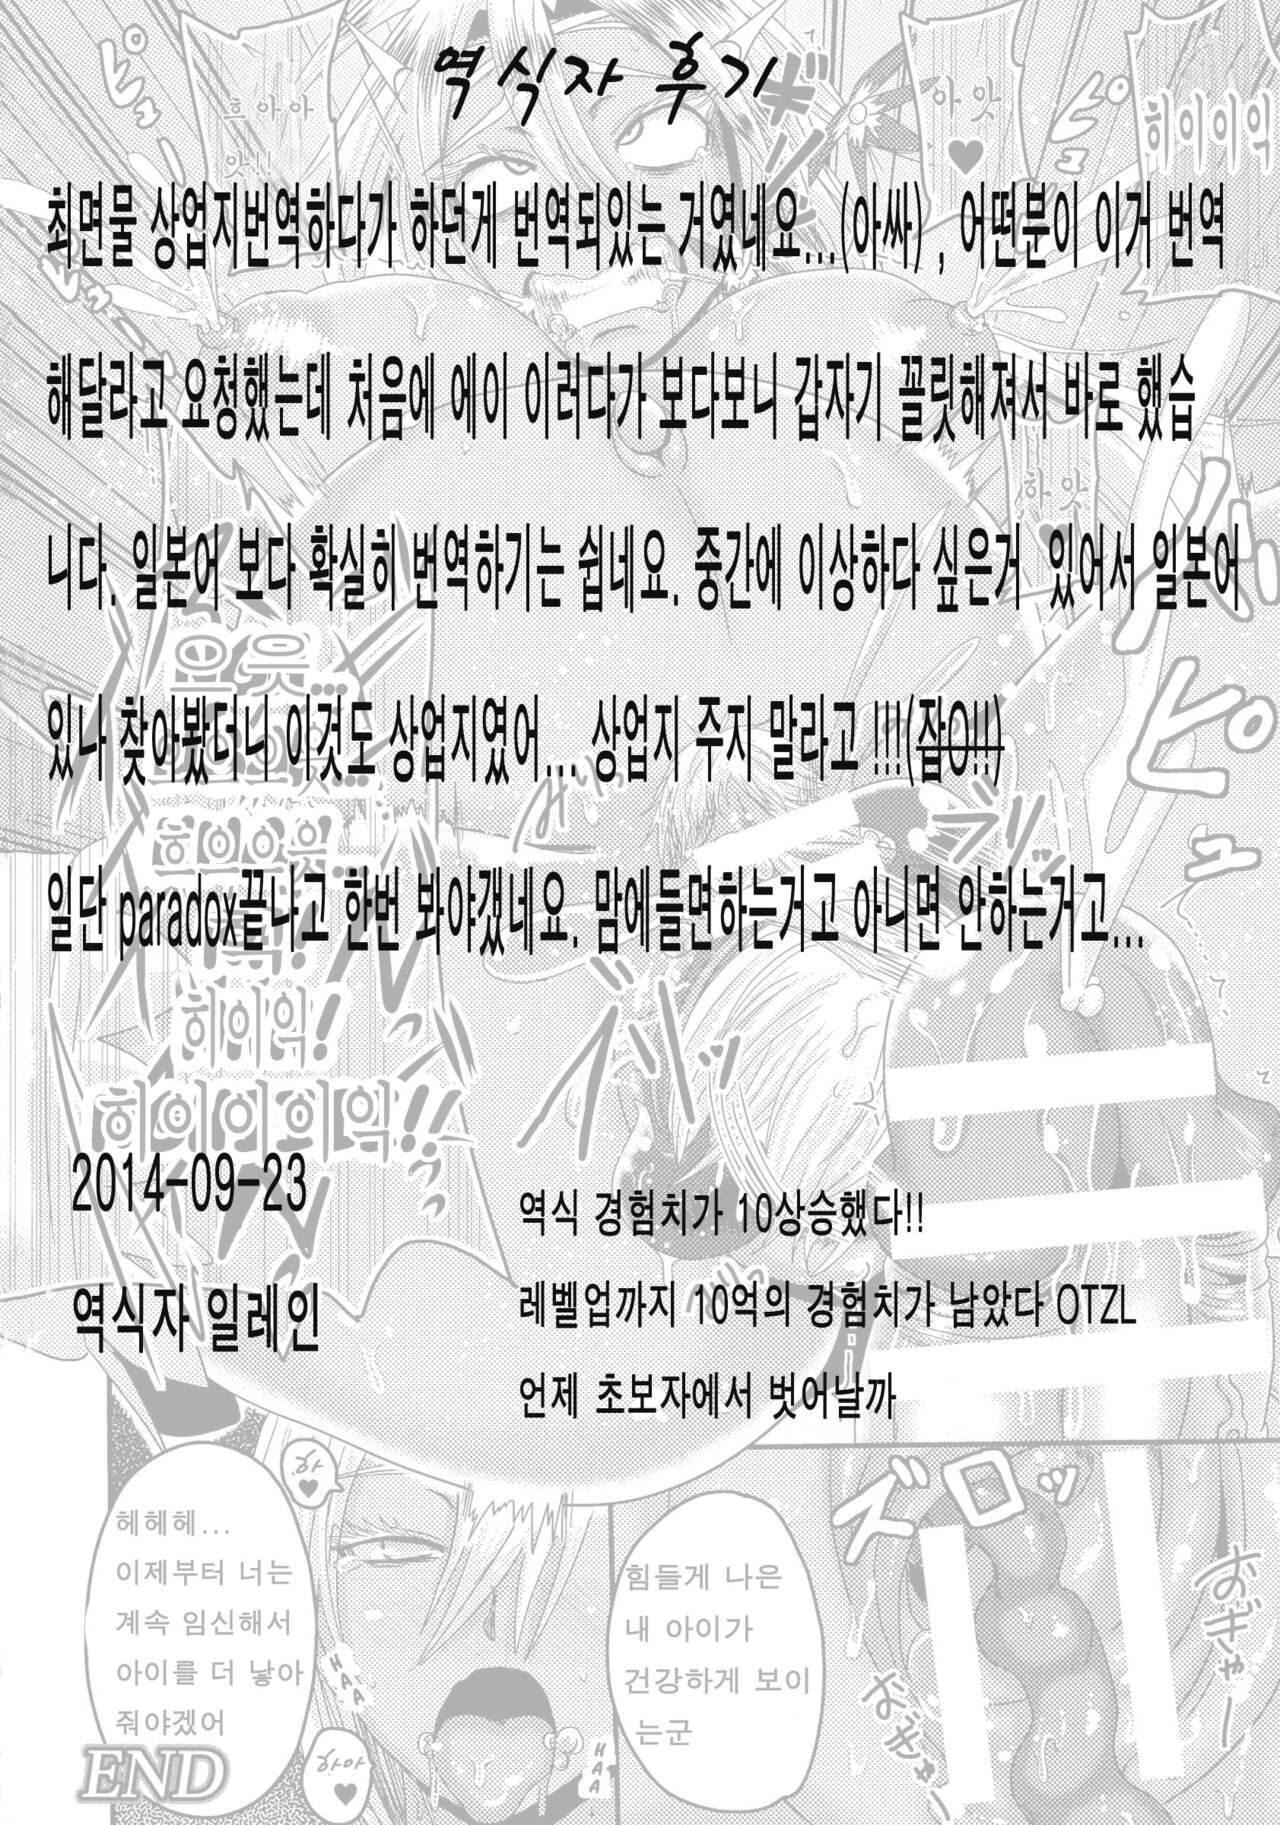 역식자 후기
최면물 상업지번역하다가 하던게 번역되있는 거였네요...(아싸) , 어떤분이 이거 번역
해달라고 요청했는데 처음에 에이 이러다가 보다보니 갑자기 꼴릿해져서 바로 했습
니다. 일본어 보다 확실히 번역하기는 쉽네요. 중간에 이상하다 싶은거 있어서 일본어
있나 찾아봤더니 이것도 상업지였어... 상업지 주지 말라고 !!!(잡O!!)
일단 paradox끝나고 한번 봐야걨네요. 맘에들면하는거고 아니면 안하는거고...
2014-09-23
역식자 일레인
역식 경험치가 10상승했다!!
레벨업까지 10억의 경험치가 남았다 OTZL
언제 초보자에서 벗어날까
흐아아
앗!!
아앗
히이이익
하앗
요읏...
흐으으읏...
히이익!
히이이의익!!
하
헤헤헤...
이제부터 너는
계속 임신해서
아이를 더 낳아
줘야겠어
END
HAA
하아
HAA
힘들게 나은
내 아이가
건강하게 보이
는군
おぎゃー
おぎゃー